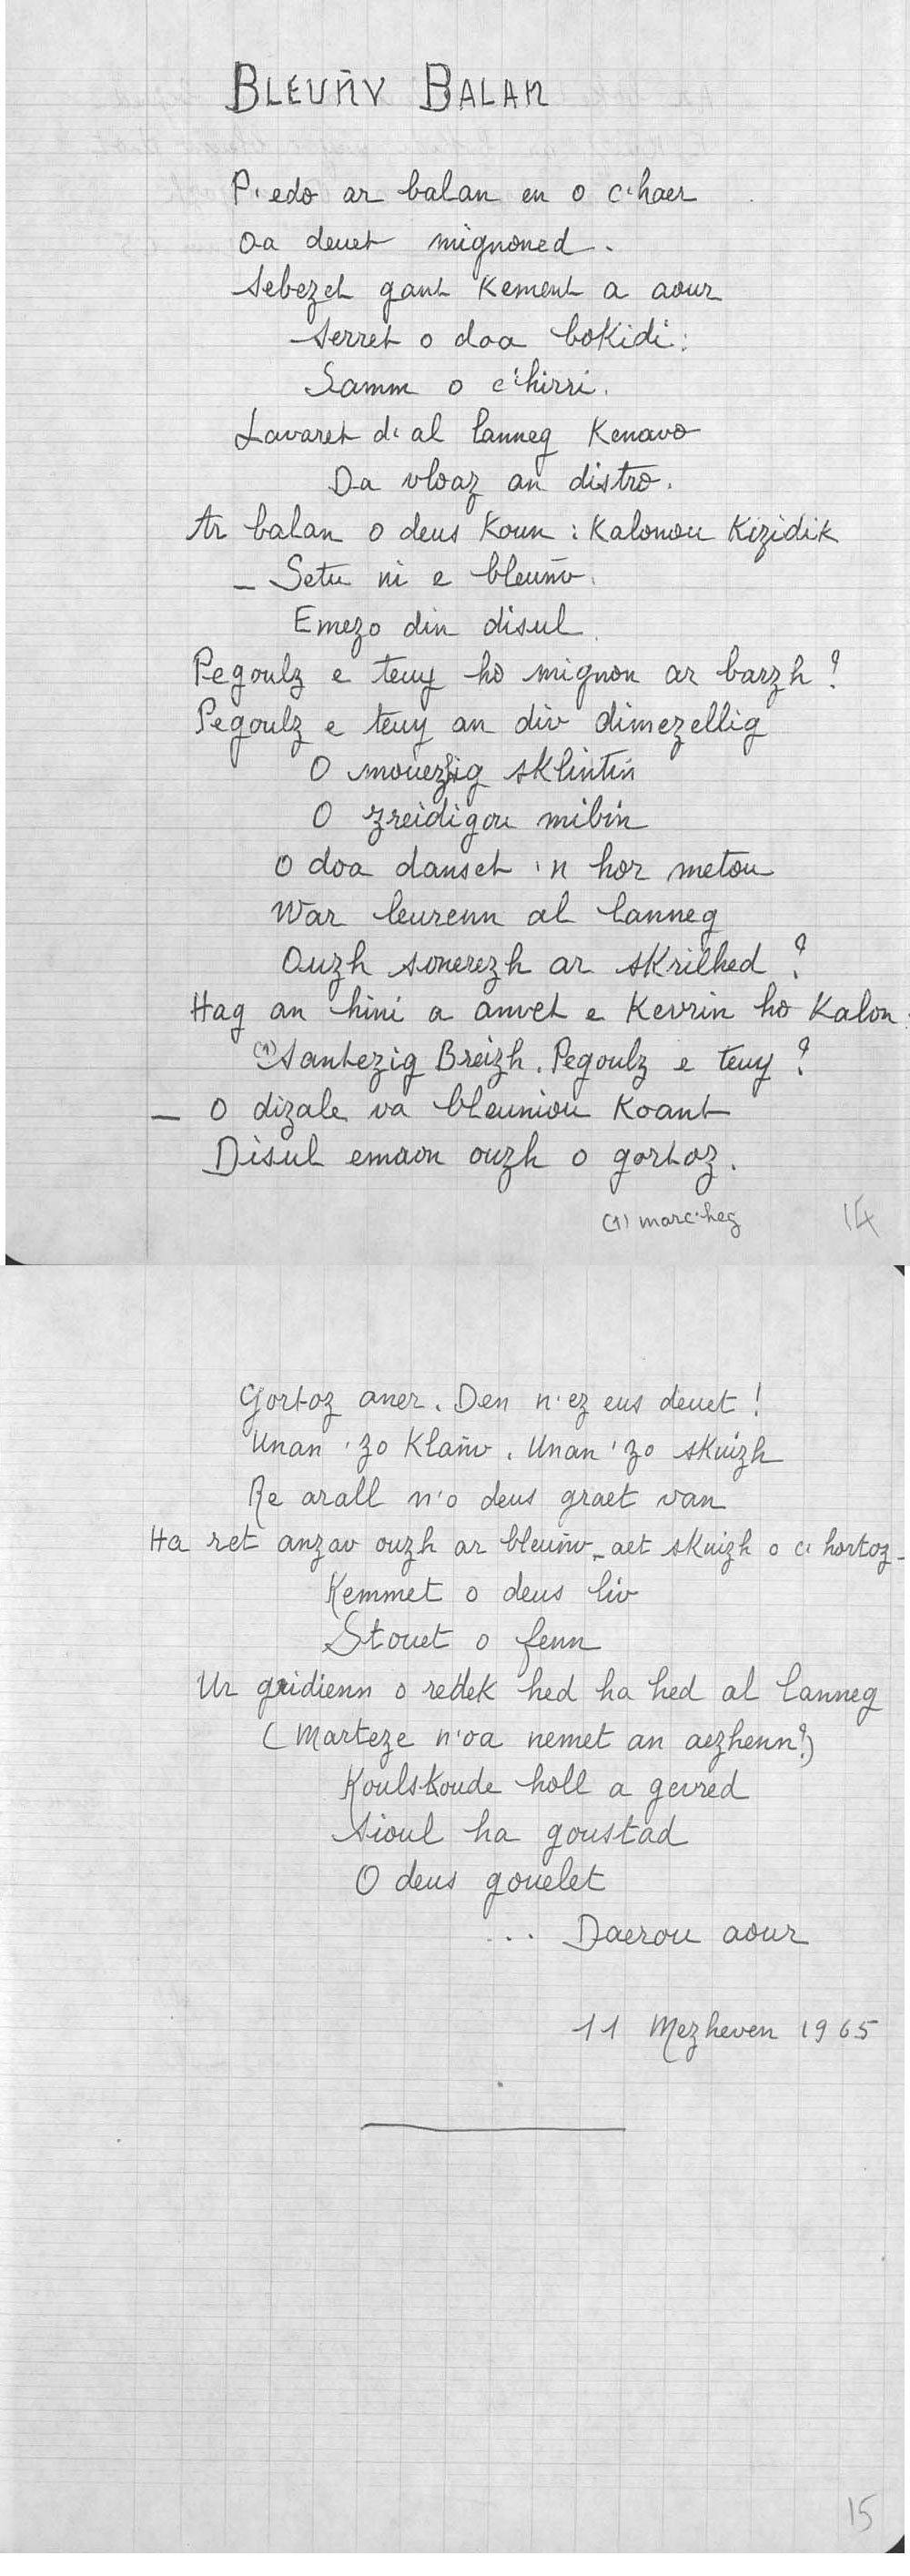 BLEUÑV BALAN
P'edo ar balan en o c'haer
Oa deuet mignoned.
Sebezet gant Kement a aour
Serret o doa boKidi:
Samm o c'hirri.
Lavaret d'al lanneg Kenavo
Da vloaz an distro.
Ar balan o deus Koun : Kalonou Kizidik
_ Setu ni e bleuñv.
Emezo din disul.
Pegoulz e teuy ho mignon ar barzh ?
Pegoulz e teuy an div dimezellig
O mouezhig sklintiñ
O zreidigou mibin
O doa danset 'n hor metou
War leurenn al lanneg
Ouzh sonerezh ar skrilhed ?
Hag an hini a anvet e Kevrin ho Kalon :
(1) Santezig Breizh. Pegoulz e teuy ?
_ O dizale va bleuniou Koant
Disul emaon ouzh o gortoz.
(1) marc'heg
14
Gortoz aner. Den n'ez eus deuet !
Unan 'zo Klañv. Unan 'zo skuizh
Re arall n'o deus graet van
Ha ret anzav ouzh ar bleuñv _ aet skuizh o c'hortoz _
Kemmet o deus liv
Stouet o fenn
Ur gridienn o redek hed ha hed al lanneg
(Marteze n'oa nemet an aezhenn?)
Koulskoude holl a gevred
Sioul ha goustad
O deus gouelet
... Daerou aour
11 Mezheven 1965
15